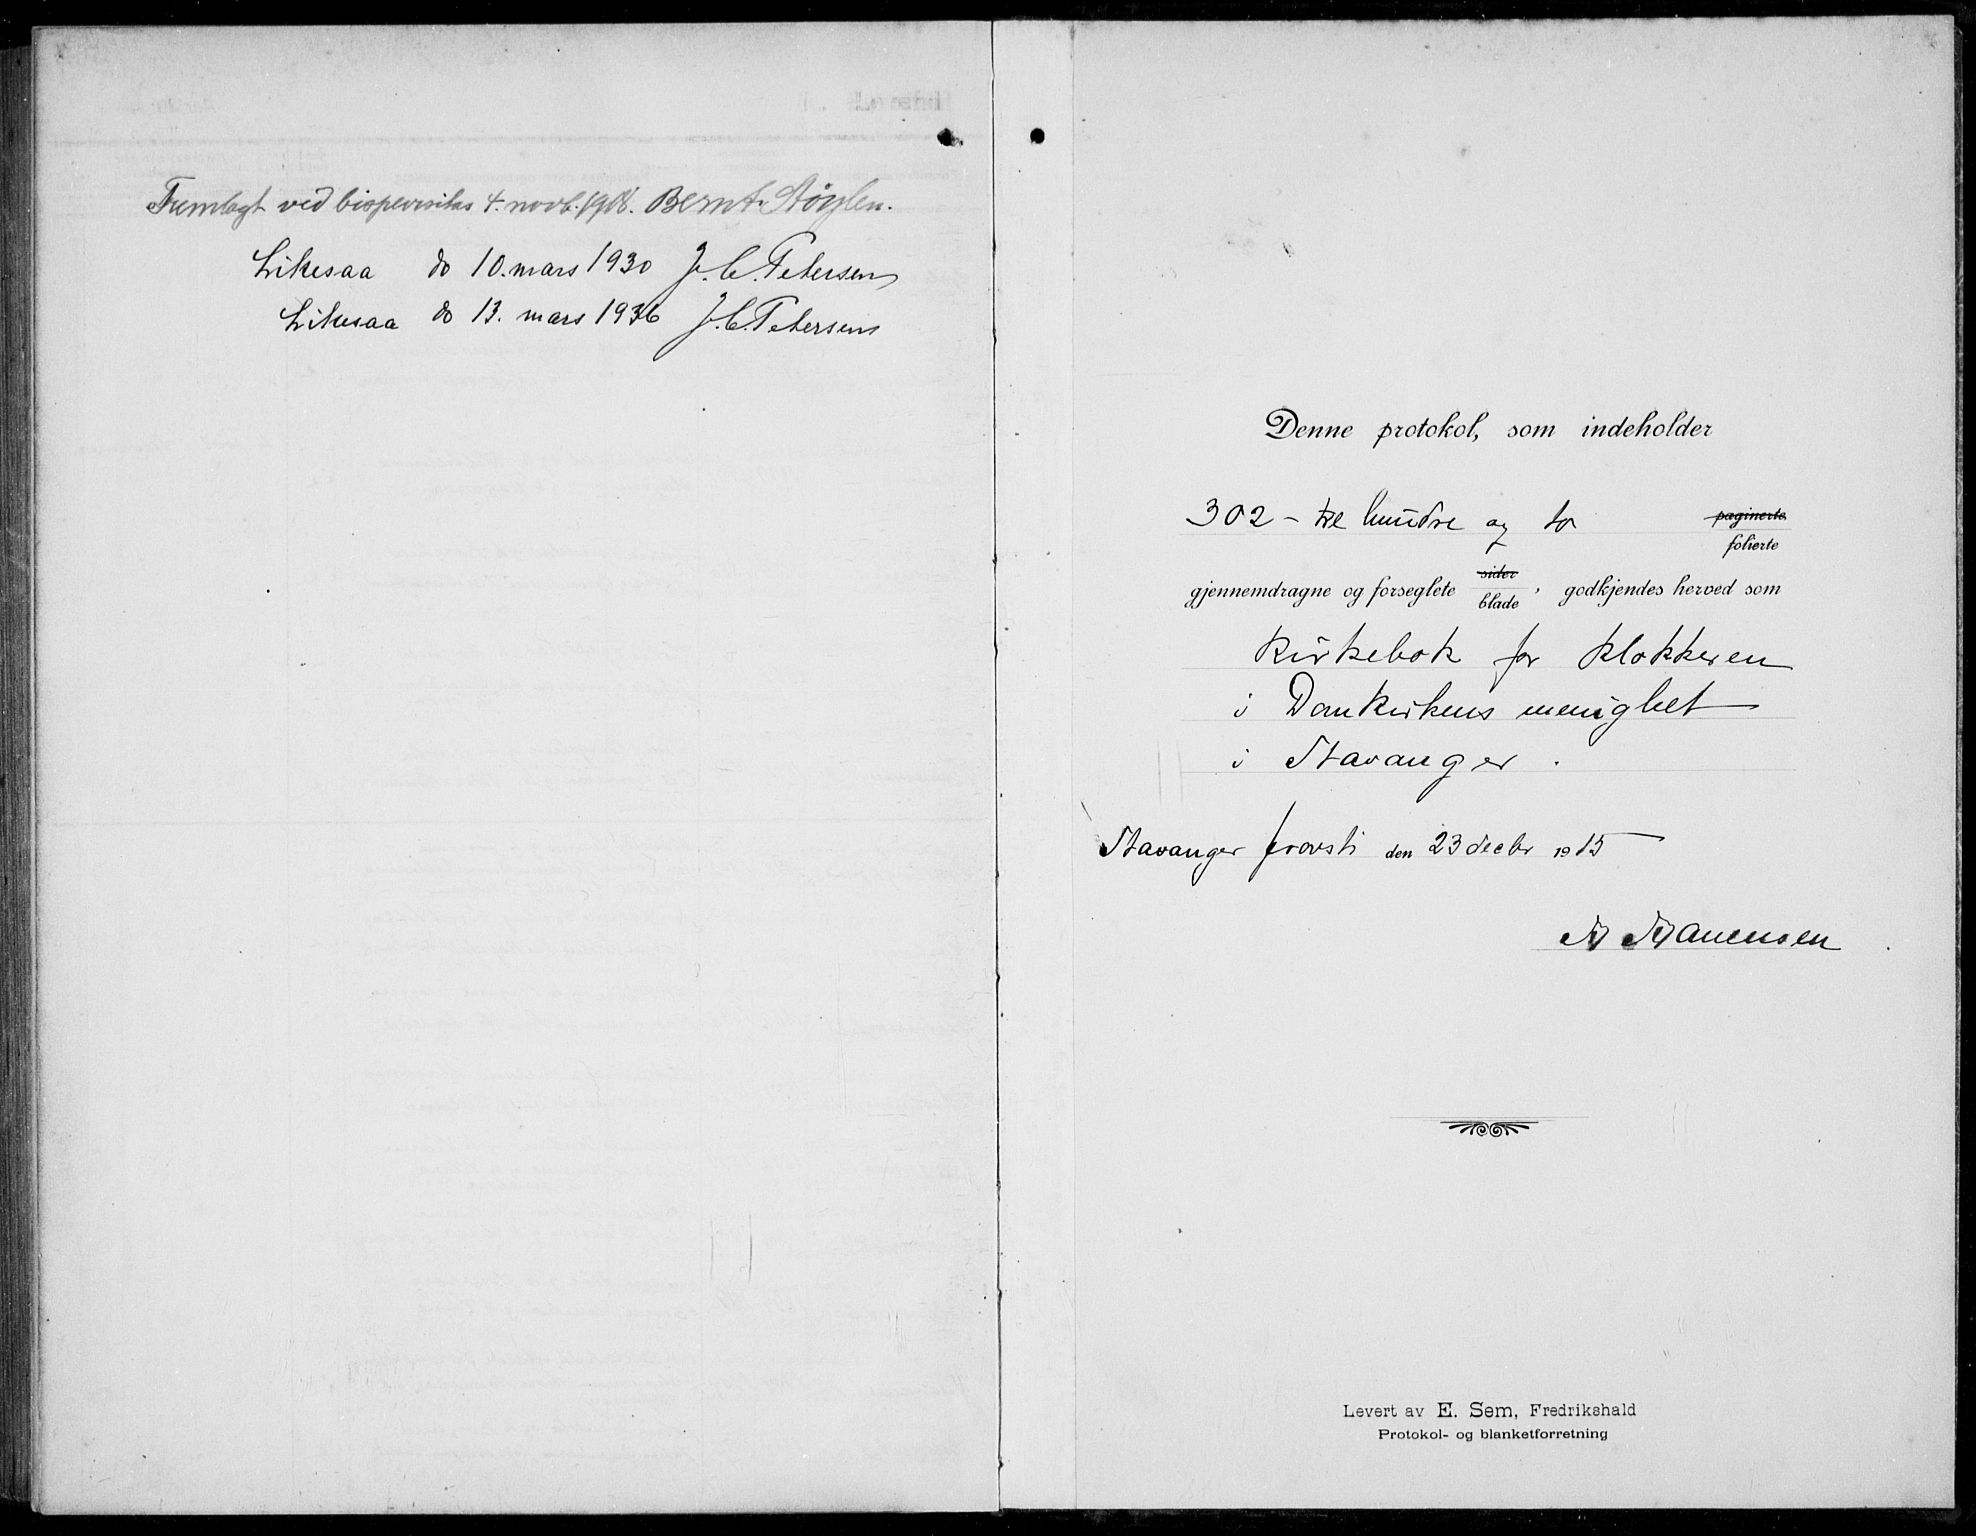 Fremlagt ved bispevisitas 4. novb. 1918. Bernt Støylen.
Likesaa do 10. mars 1930 J. C. Petersen
Likesaa do 13. mars 1936 J. C. Petersen
Denne protokol, som indeholder
302 - tre hundre og to paginerte
folierte
gjennemdragne og forseglete sider
blade, godkjendes herved som
Kirkebok for klokkeren
i Domkirkens menighet
i Stavanger.
Stavanger provsti den 23 decbr 1915
Levert av E. Sem, Fredrikshald
Protokol- og blanketforretning